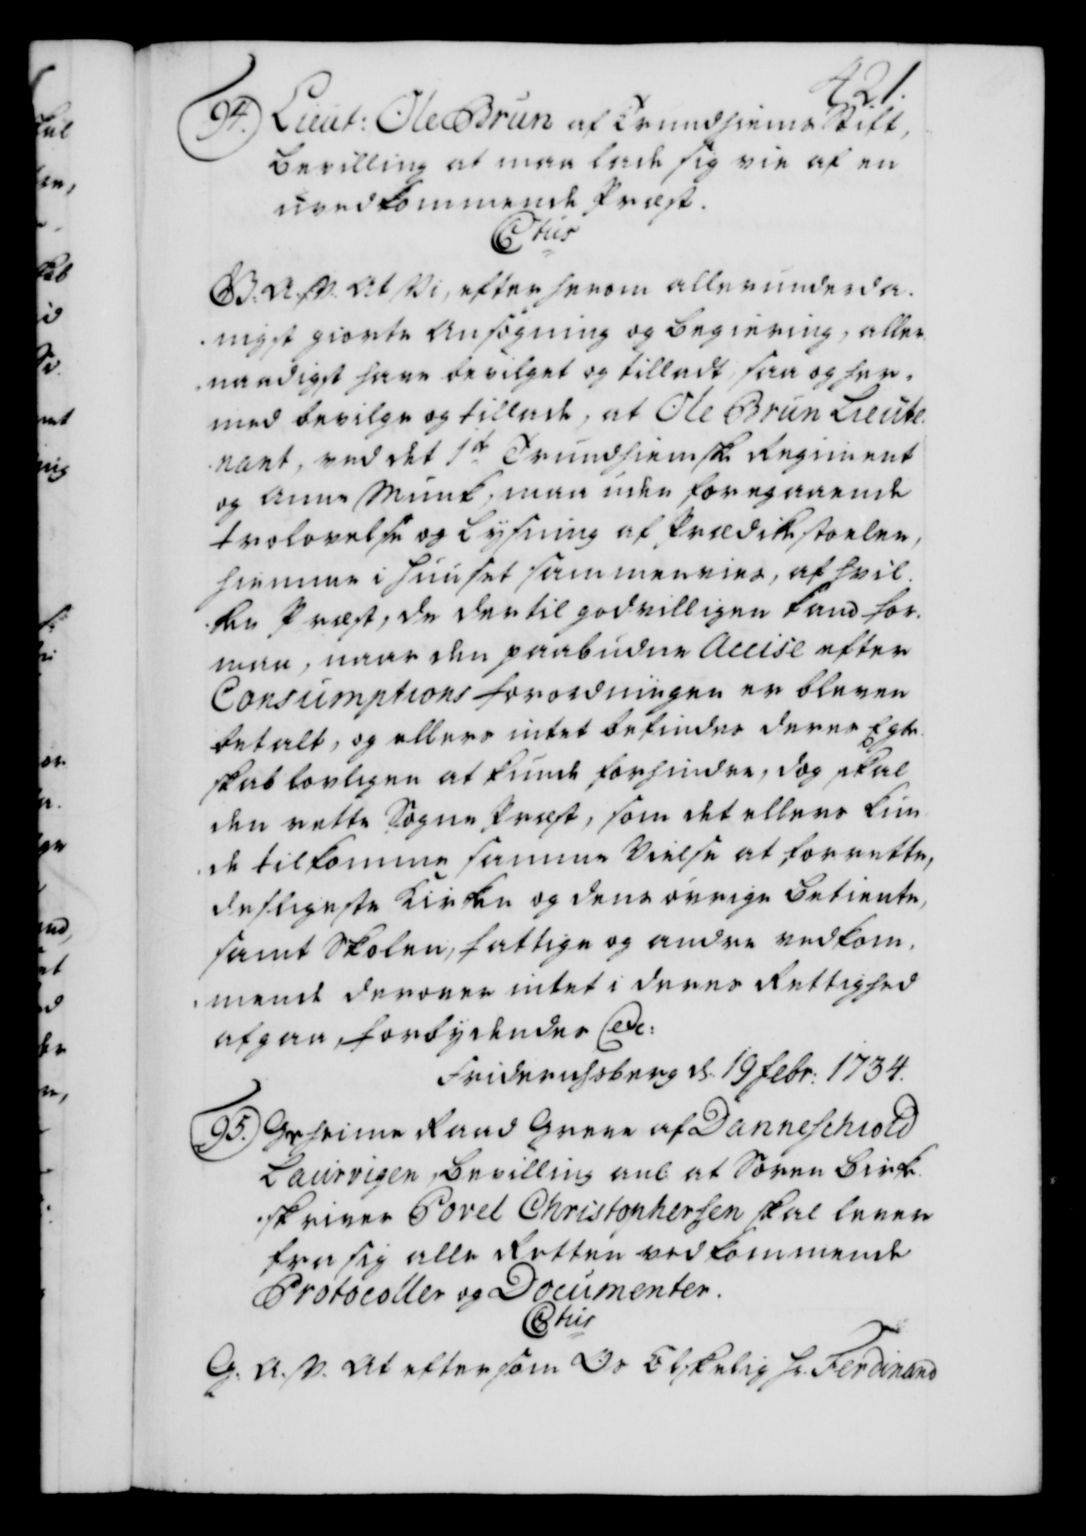 421.
94. Lieut: Ole Brun af Trundhiems Stift,
Bevilling at maa lade sig vie af en
uvedkommende Præst.
C 6tus
G. A. V. At Vi, efter herom allerunderda-
nigst giorte Ansøgning og Begiering, aller-
naadigst have bevilget og tilladt, saa og her-
med bevilge og tillade, at Ole Brun Lieute-
nant, ved det 1ste Trundhiemske Regiment
og Anne Munk, maa uden foregaaende
trolovelse og Lysning af Prædikestoelen,
hiemme i Huuset sammenvies, af hvil-
ken Præst, de dertil godvilligen kand for-
maa, naar den paabudne Accise efter
Consumptions forordningen er bleven
betalt, og ellers intet befindes deres Egte-
skab lovligen at kunde forhindre, dog skal
den rette Sogne Præst, som det ellers kun-
de tilkomme samme Vielse at forrette,
desligeste Kirken og dens øvrige Betiente,
samt Skolen, fattige og andre vedkom-
mende derover intet i deres Rettighed
afgaa, forbydendes Etc:
Friderichsberg d. 19 Febr: 1734.
95. Geheime Raad Greve af Danneschiold
Laurvigen, Bevilling anl at Søren Birk-
skriver Povel Christophersen skal lever
fra sig alle Retten vedkommende
Protocoller og Documenter.
C 6tus
G. A. V. At eftersom Os Elskelig Hr. Ferdinand